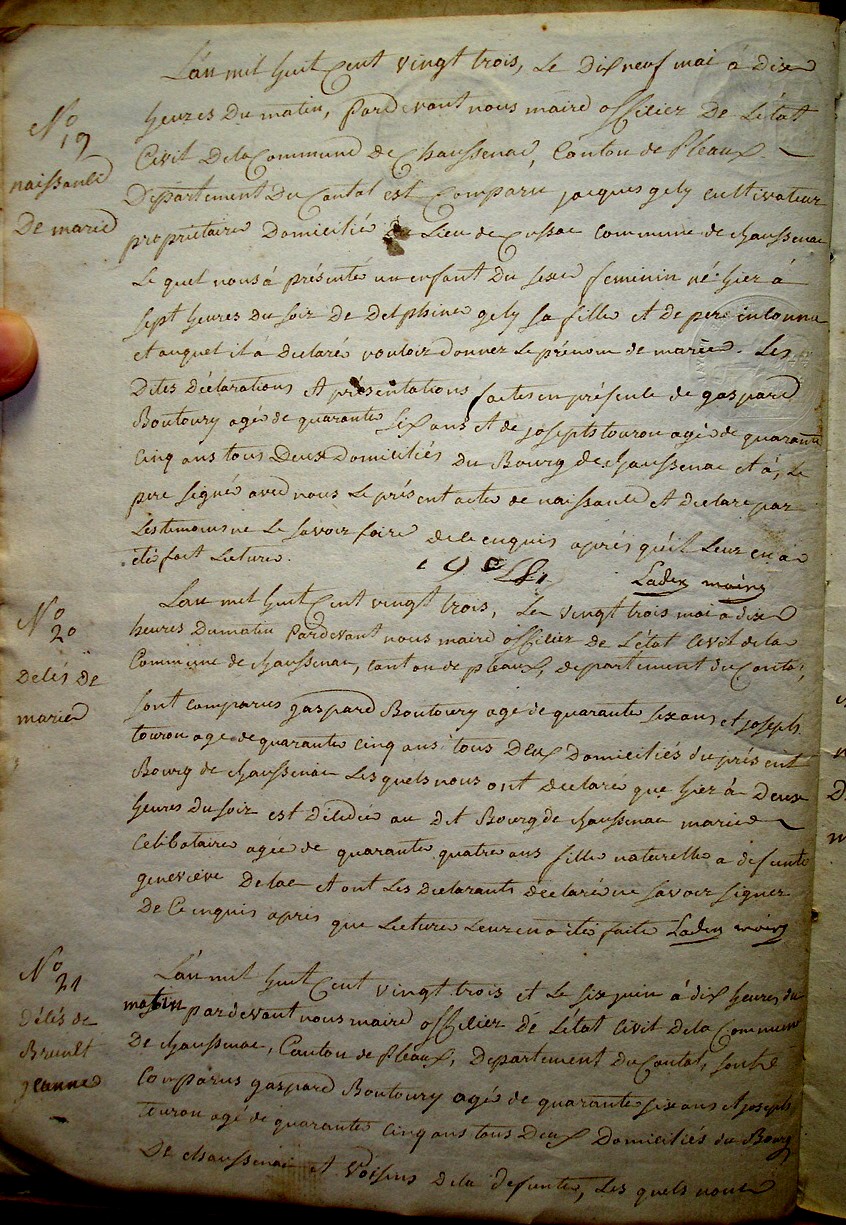 L'an mil huit Cent vingt trois, Le Dix neuf mai à dix
No
19
naissance
De marie
heures Du matin, Pardevant nous maire officier De L'état
Civil De la Commune de Chaussenac, Canton de Pléaux
Departement Du Cantal est Comparu jacques gely cultivateur
propriétaire Domicilié Lieu de Cussac Commune de chaussenac
Le quel nous à présenté un enfant Du sexe feminin né hier à
sept heures Du soir De Delphine gely sa fille et De pere inconnu
et auquel il à Declaré vouloir donner Le prénom de marie. Les
Dites Déclarations et présentations faites en présence de gaspard
Boutoury agé de quarante six ans et de joseph touron agé de quarante
Cinq ans tous Deux Domiciliés Du Bourg de chaussenac et à, Le
pere signé avec nous Le présent acte de naissance et Declaré par
Les temoins ne Le savoir faire de ce enquis après qu'il Leur en a
été fait Lecture.
Ladex maire
No
20
Délés de
marie
L'an mil huit Cent vingt trois, Le vingt trois mai à dix
heures Du matin Pardevant nous maire officier de L'état Civil de la
Commune de chaussenac, canton de pleaux, département du Cantal,
sont comparus gaspard Boutoury agé de quarante six ans et joseph
touron agé de quarante cinq ans tous Deux Domiciliés du présent
Bourg de chaussenac Lesquels nous ont declaré que hier à Deux
heures Du soir est Décédée au Dit Bourg de chaussenac marie
Celibataire agée de quarante quatre ans fille naturelle a defunte
geneviève Delac et ont Les Declarants declaré ne savoir signer
De Ce enquis après que Lecture Leur en a été faite Ladex maire
No
21
Délés de
Brunet
jeanne
L'an mil huit Cent vingt trois et Le six juin à dix heures du
matin pardevant nous maire officier de L'état Civil De la Commune
De chaussenac, Canton de Pléaux, Departement Du Cantal, sont
Comparus gaspard Boutoury agé de quarante six ans et joseph
touron agé de quarante cinq ans tous Deux Domiciliés du Bourg
De chaussenac et Voisins De la defunte, Les quels nous